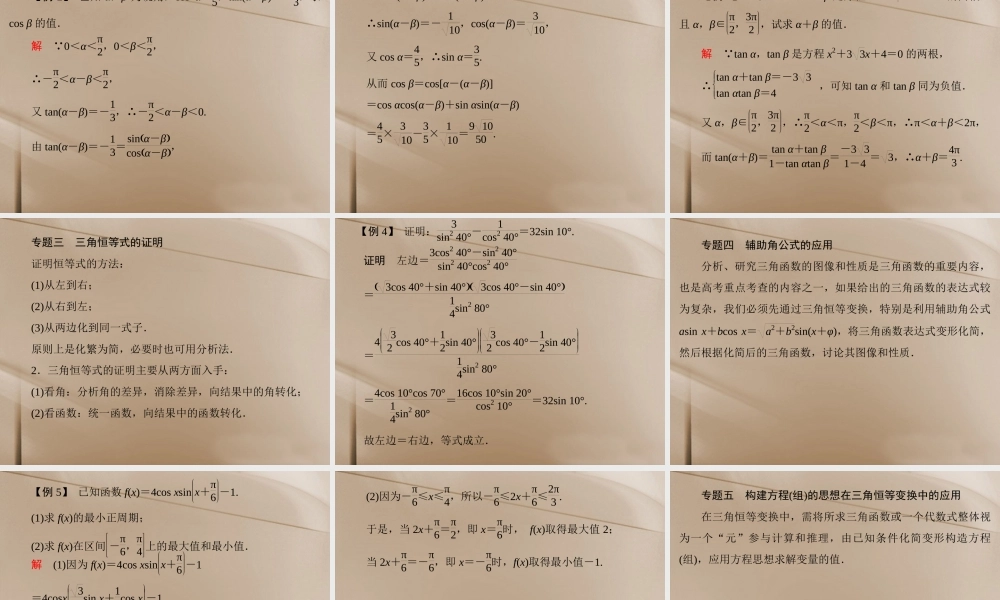 cos β 的值.
解 ∵0<α<π/2，0<β<π/2，
∴－π/2<α－β<π/2，
又 tan(α－β)＝－1/3，∴－π/2<α－β<0.
由 tan(α－β)＝－1/3＝sin(α－β)/cos(α－β)，
∴sin(α－β)＝－1/√10，cos(α－β)＝3/√10，
又 cos α＝4/5，∴sin α＝3/5.
从而 cos β＝cos[α－(α－β)]
＝cos αcos(α－β)＋sin αsin(α－β)
＝4/5×3/√10－3/5×1/√10＝9√10/50.
且 α，β∈[π/2，3π/2]，试求 α＋β 的值.
解 ∵tan α，tan β 是方程 x²＋3√3x＋4＝0 的两根，
∴{tan α＋tan β＝－3√3
tan αtan β＝4，可知 tan α 和 tan β 同为负值.
又 α，β∈[π/2，3π/2]，∴π/2<α<π，π/2<β<π，∴π<α＋β<2π，
而 tan(α＋β)＝(tan α＋tan β)/(1－tan αtan β)＝－3√3/(1－4)＝√3，∴α＋β＝4π/3.
专题三 三角恒等式的证明
证明恒等式的方法：
(1)从左到右；
(2)从右到左；
(3)从两边化到同一式子.
原则上是化繁为简，必要时也可用分析法.
2．三角恒等式的证明主要从两方面入手：
(1)看角：分析角的差异，消除差异，向结果中的角转化；
(2)看函数：统一函数，向结果中的函数转化.
【例 4】 证明：3/sin² 40°－1/cos² 40°＝32sin 10°.
证明 左边＝(3cos² 40°－sin² 40°)/(sin² 40°cos² 40°)
＝(√3cos 40°＋sin 40°)(√3cos 40°－sin 40°)/(1/4 sin² 80°)
＝4(√3/2 cos 40°＋1/2 sin 40°)(√3/2 cos 40°－1/2 sin 40°)/(1/4 sin² 80°)
＝4cos 10°cos 70°/(1/4 sin² 80°)＝16cos 10°sin 20°/cos² 10°＝32sin 10°.
故左边＝右边，等式成立.
专题四 辅助角公式的应用
分析、研究三角函数的图像和性质是三角函数的重要内容，
也是高考重点考查的内容之一，如果给出的三角函数的表达式较
为复杂，我们必须先通过三角恒等变换，特别是利用辅助角公式
asin x＋bcos x＝√a²＋b²sin(x＋φ)，将三角函数表达式变形化简，
然后根据化简后的三角函数，讨论其图像和性质.
【例 5】 已知函数 f(x)＝4cos xsin(x＋π/6)－1.
(1)求 f(x)的最小正周期；
(2)求 f(x)在区间[－π/6，π/4]上的最大值和最小值.
解 (1)因为 f(x)＝4cos xsin(x＋π/6)－1
＝4cosx(√3/2 sin x＋1/2 cos x)－1
(2)因为－π/6≤x≤π/4，所以－π/6≤2x＋π/6≤2π/3.
于是，当 2x＋π/6＝π/2，即 x＝π/6时， f(x)取得最大值 2；
当 2x＋π/6＝－π/6，即 x＝－π/6时，f(x)取得最小值－1.
专题五 构建方程(组)的思想在三角恒等变换中的应用
在三角恒等变换中，需将所求三角函数或一个代数式整体视
为一个“元”参与计算和推理，由已知条件化简变形构造方程
(组)，应用方程思想求解变量的值.